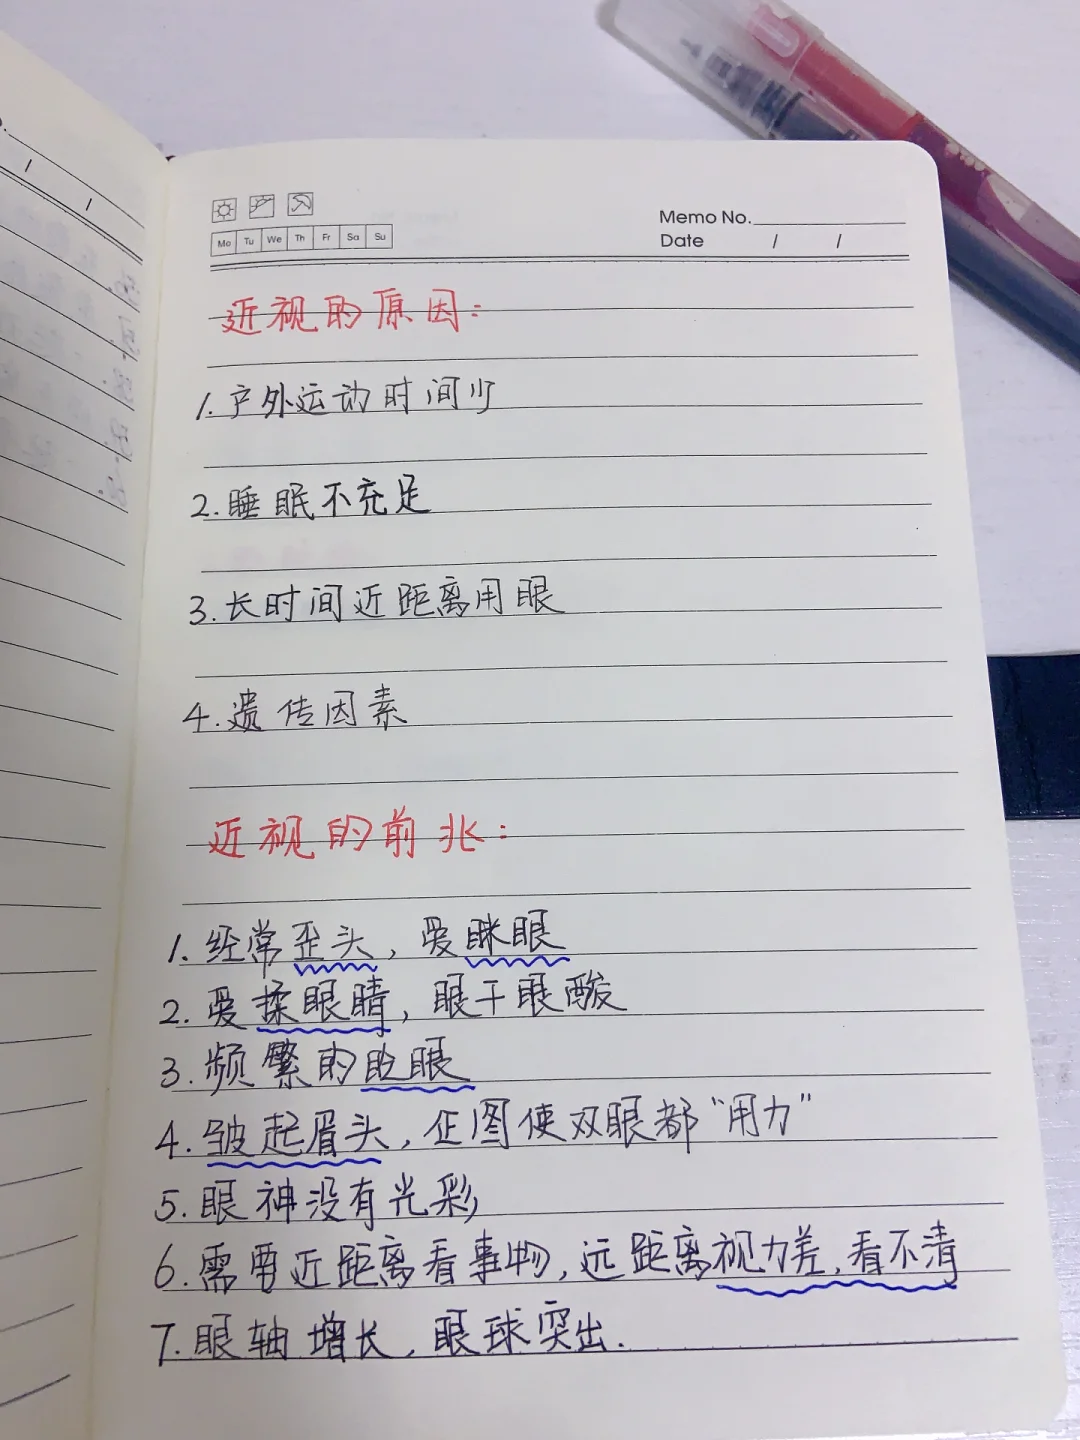 Mo Tu We Th Fr Sa Su
Memo No.
Date / /
近视的原因:
1.户外运动时间少
2.睡眠不充足
3.长时间近距离用眼
4.遗传因素
近视的前兆:
1.经常歪头,爱眯眼
2.爱揉眼睛,眼干眼酸
3.频繁的眨眼
4.皱起眉头,企图使双眼都“用力”
5.眼神没有光彩
6.需要近距离看事物,远距离视力差,看不清
7.眼轴增长,眼球突出.